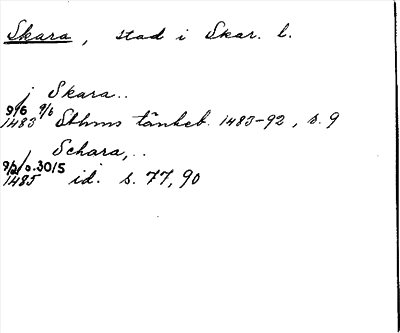 Skara, stad i Skar. l.
i Skara..
9/6 1483 9/6 Sthms tänkeb. 1483-92, s. 9
i Schara,..
9/2 o. 30/5
1485 id. s. 77, 90